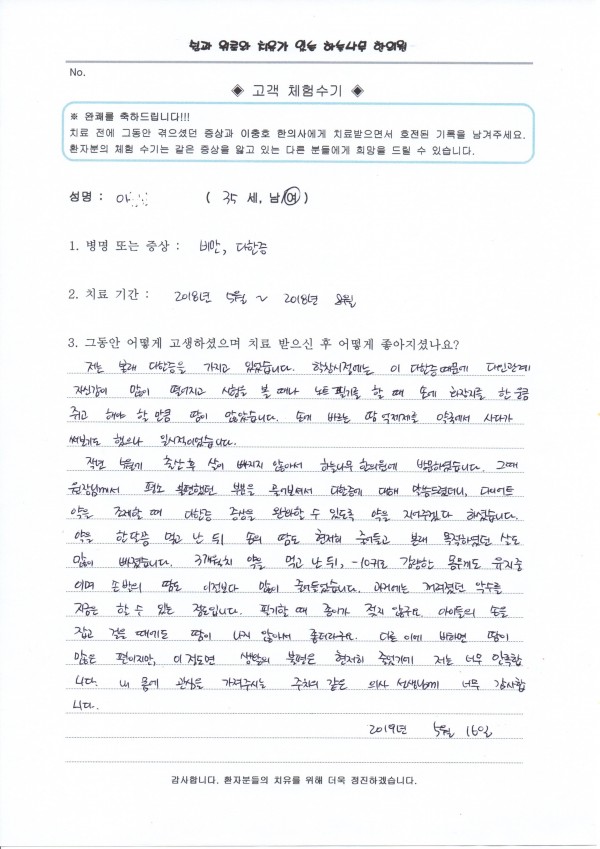 쉼과 위로와 치유가 있는 하늘나무 한의원
No.
◈ 고객 체험수기 ◈
※ 완쾌를 축하드립니다!!!
치료 전에 그동안 겪으셨던 증상과 이충호 한의사에게 치료받으면서 호전된 기록을 남겨주세요.
환자분의 체험 수기는 같은 증상을 앓고 있는 다른 분들에게 희망을 드릴 수 있습니다.
성명 : 이 ( 35 세, 남/여 )
1. 병명 또는 증상 : 비만, 다한증
2. 치료 기간 : 2018년 5월 ~ 2018년 8월
3. 그동안 어떻게 고생하셨으며 치료 받으신 후 어떻게 좋아지셨나요?
저는 본래 다한증을 가지고 있었습니다. 학창시절에는 이 다한증때문에 대인관계
자신감이 많이 떨어지고 시험을 볼 때나 노트필기를 할 때 손에 화장지를 한 웅큼
쥐고 해야 할 만큼 땀이 많았습니다. 손에 바르는 땀 억제제를 약국에서 사다가
써보기도 했으나 일시적이었습니다.
작년 봄쯤에 출산 후 살이 빠지지 않아서 하늘나무 한의원에 방문하였습니다. 그때
원장님께서 평소 불편했던 부분을 물어보셔서 다한증에 대해 말씀드렸더니, 다이어트
약을 조제할 때 다한증 증상을 완화할 수 있도록 약을 지어주겠다 하셨습니다.
약을 한달쯤 먹고 난 뒤 손의 땀도 현저히 줄어들고 본래 목적하였던 살도
많이 빠졌습니다. 3개월치 약을 먹고 난 뒤, -10키로 감량한 몸무게도 유지중
이며 손발의 땀도 이전보다 많이 줄어들었습니다. 과거에는 꺼려졌던 악수를
지금은 할 수 있는 정도입니다. 필기할 때 종이가 젖지 않구요. 아이들의 손을
잡고 걸을 때에도 땀이 나지 않아서 좋더라구요. 다른 이에 비하면 땀이
많은 편이지만, 이 정도면 생활의 불편은 현저히 줄었기에 저는 너무 만족합
니다. 내 몸에 관심을 가져주시는 주치의 같은 의사 선생님께 너무 감사합
니다.
2019년 5월 16일
감사합니다. 환자분들의 치유를 위해 더욱 정진하겠습니다.